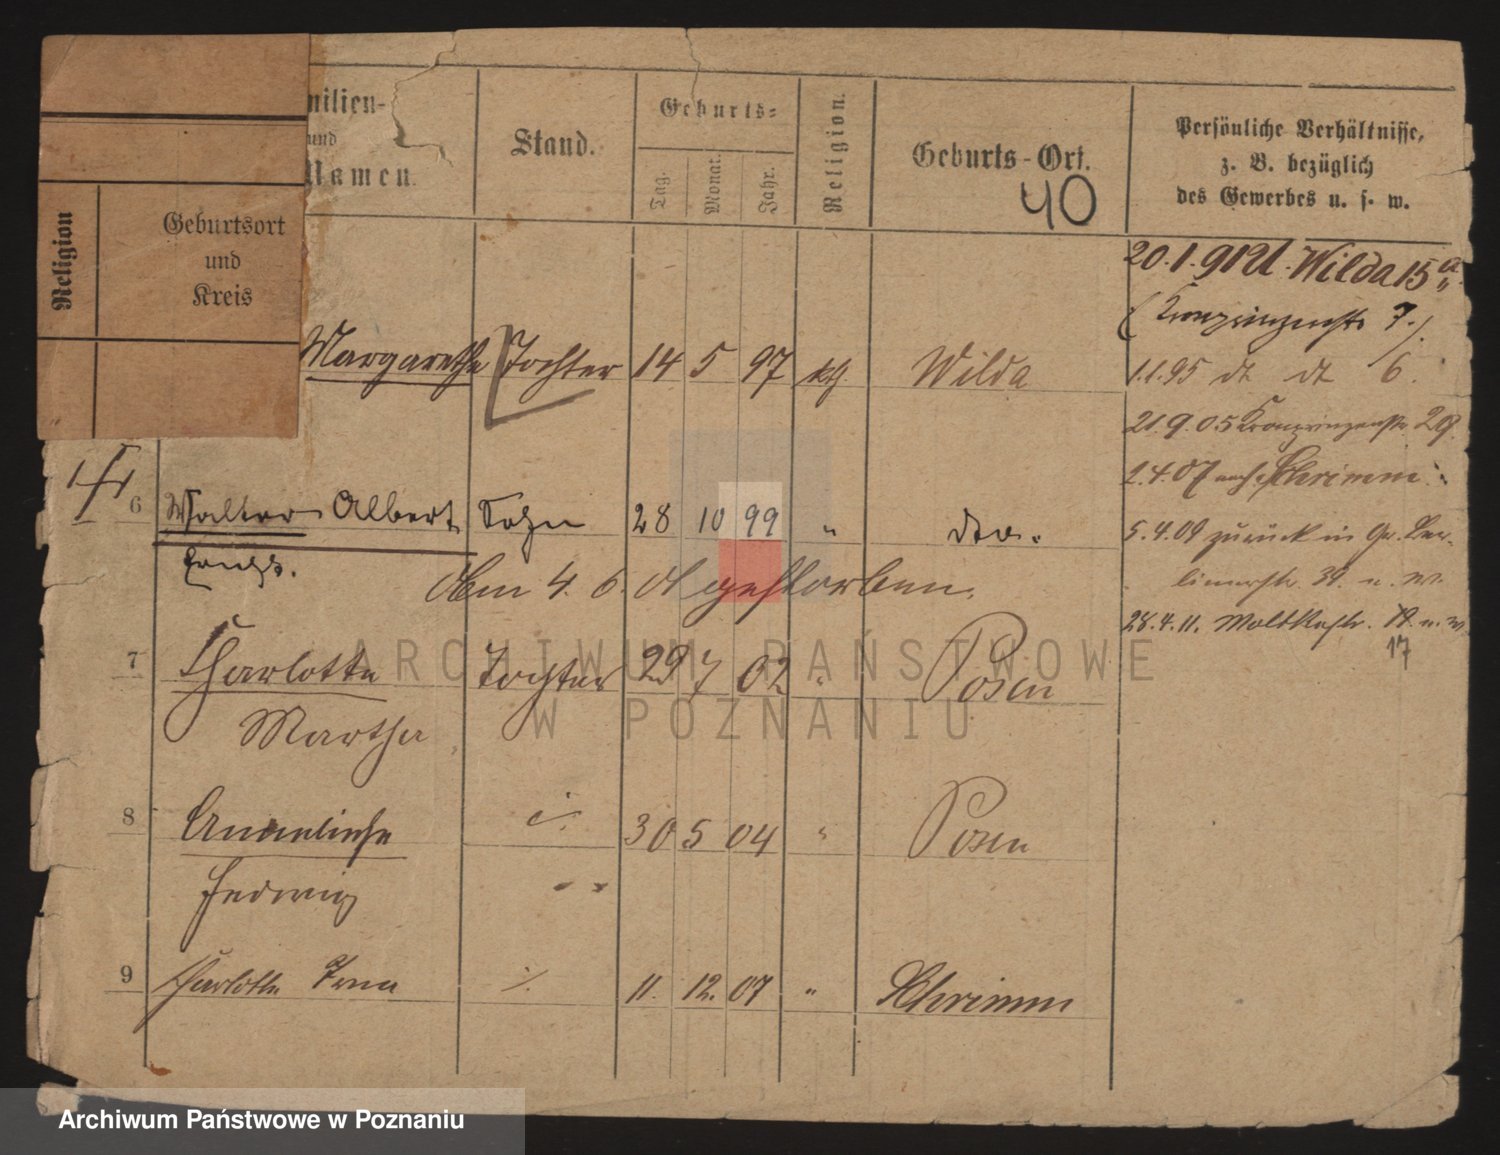 milien-
und
Namen.
Stand.
Geburts=
Tag.
Monat.
Jahr.
Religion.
Geburts-Ort.
40
Persönliche Verhältnisse,
z. B. bezüglich
des Gewerbes u. s. w.
Religion
Geburtsort
und
Kreis
20.1.91 Wilda 15a
7.)
Margarethe Tochter 14 5 97 kth. Wilda
1.1.95 dt dt 6.
21.9.05 Kronprinzenstr. 29.
2.4.07 nach Schrimm
6 Walter Albert Sohn 28 10 99 " dto.
5.4.09 zurück in Gr. Ber-
linerstr. u. W.
am 4. 6. 01 gestorben.
28.4.11. Moltkestr. 19. u. W.
17
7 Charlotte Tochter 29 7 02 " Posen
Martha
8 Anneliese 30 5 04 " Posen
Hedwig
9 Charlotte Irma 11. 12. 07 " Schrimm
ARCHIWUM PAŃSTWOWE
W POZNANIU
Archiwum Państwowe w Poznaniu